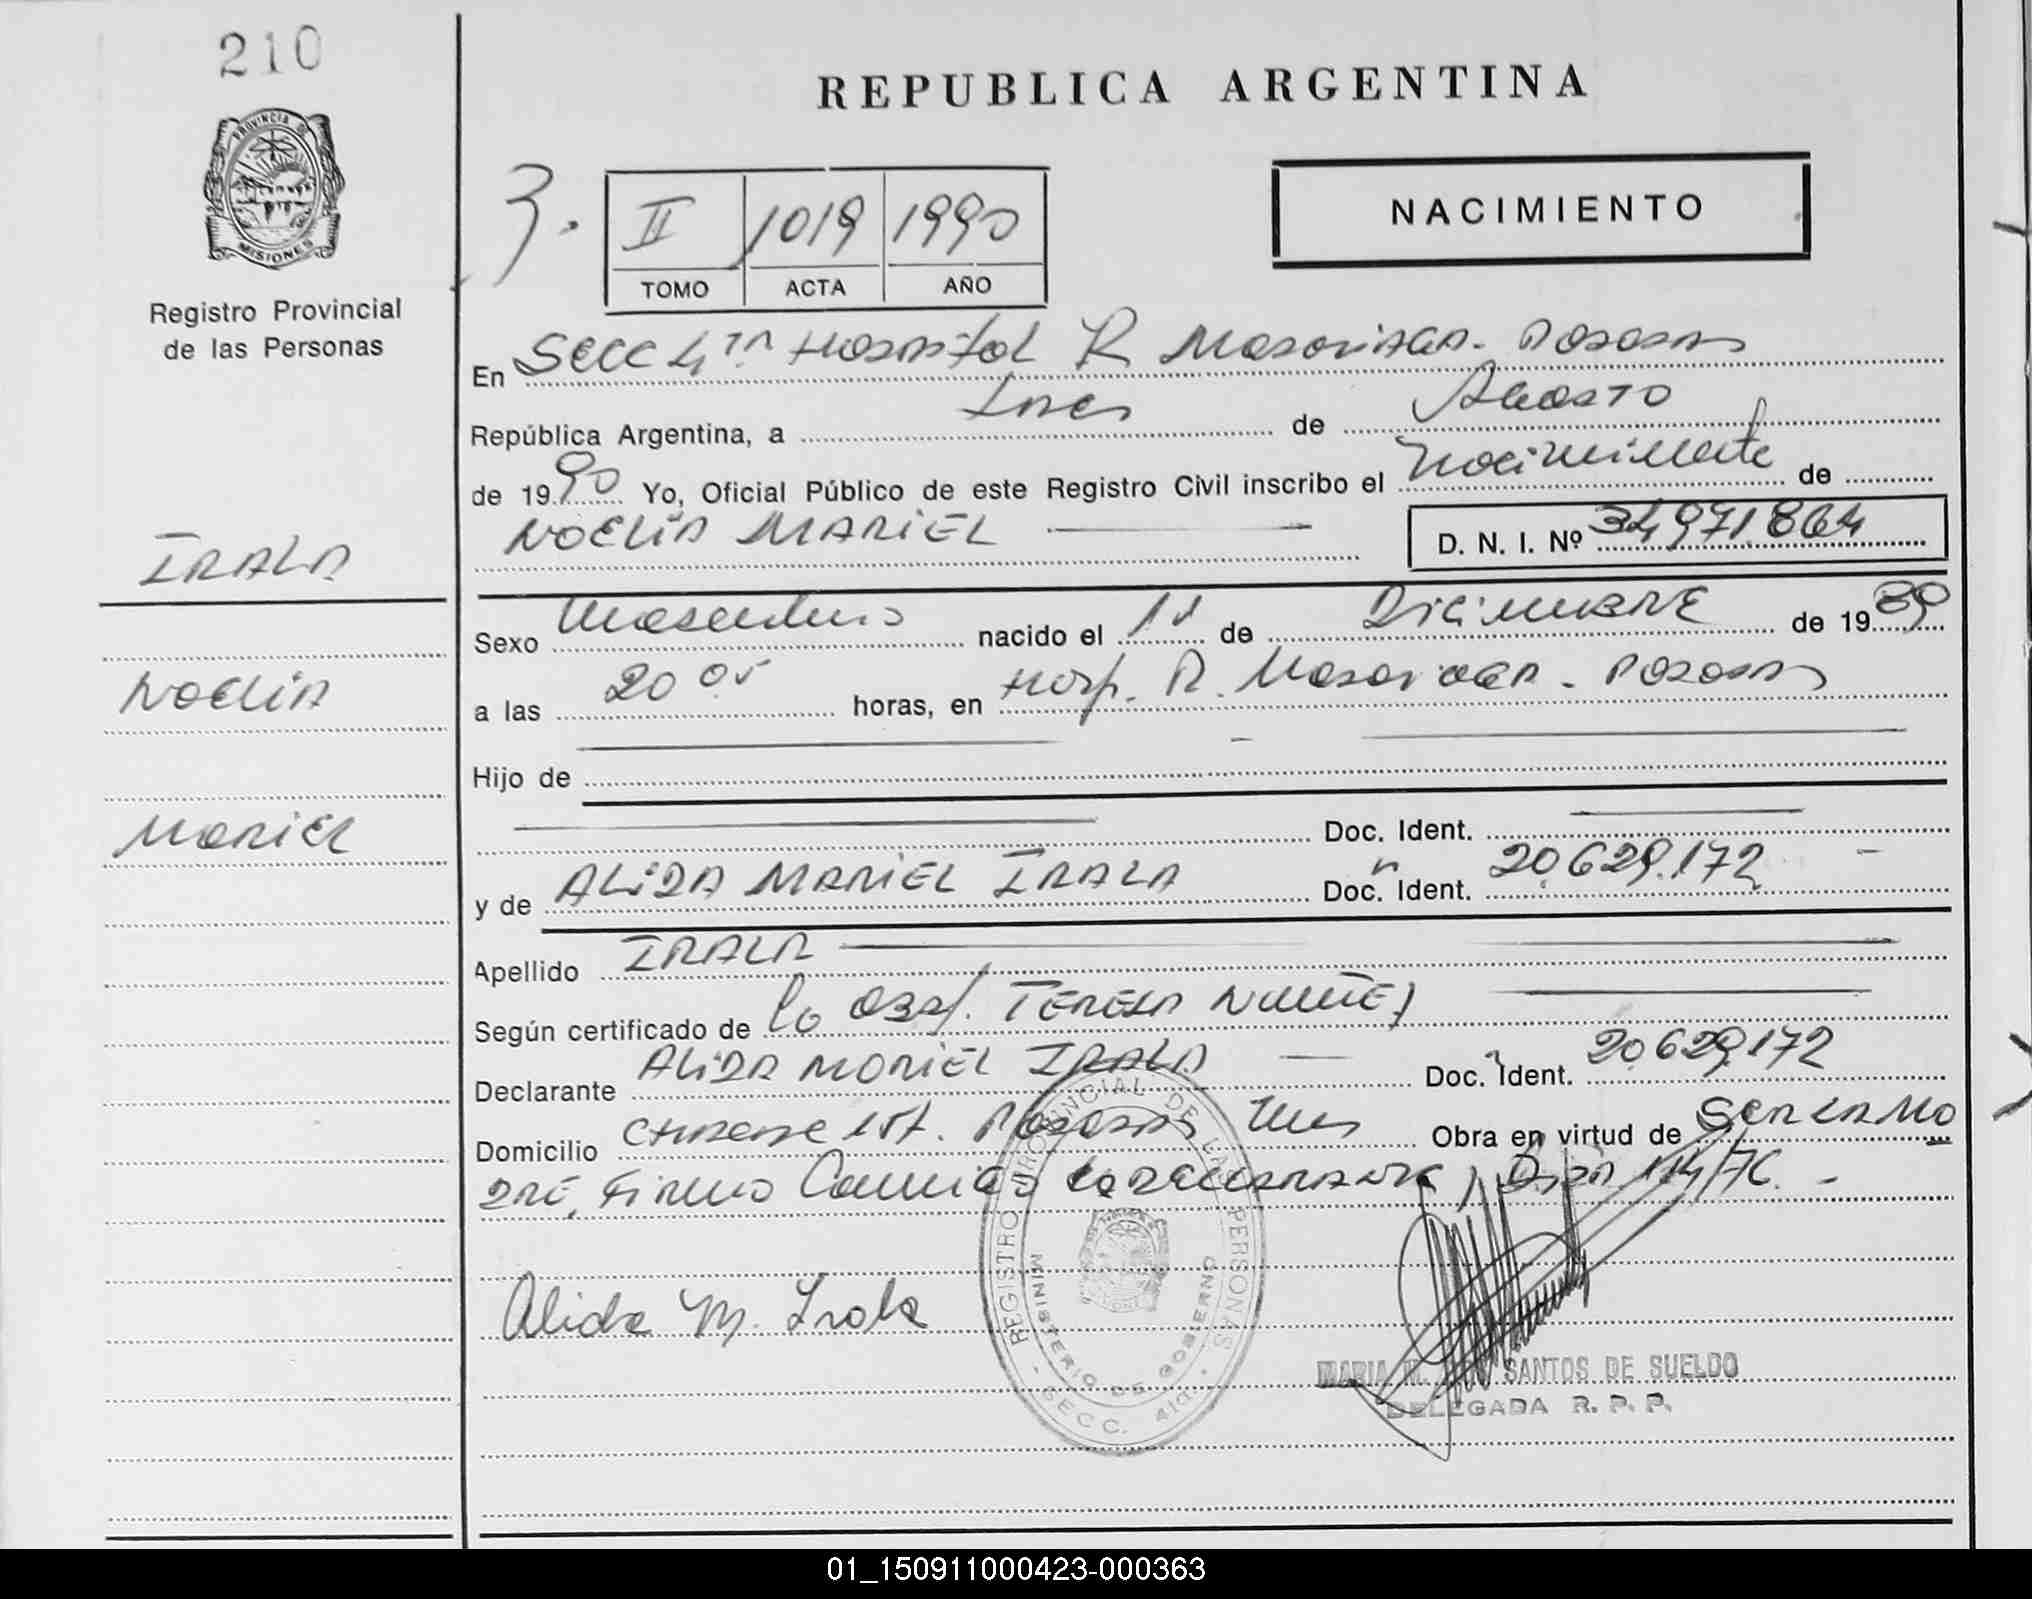 210
REPUBLICA ARGENTINA
PROVINCIA DE MISIONES
Registro Provincial
de las Personas
3.
II 1019 1990
TOMO ACTA AÑO
NACIMIENTO
En Secc 4ta Hospital R Madariaga. Posadas
República Argentina, a tres de Agosto
de 1990 Yo, Oficial Público de este Registro Civil inscribo el nacimiento de
NOELIA MARIEL D. N. I. Nº 34971864
IRALA
Sexo Masculino nacido el 11 de Diciembre de 1989
NOELIA
a las 20 05 horas, en Hosp. R. Madariaga - Posadas
Hijo de
MARIEL
Doc. Ident.
y de ALIDA MARIEL IRALA Doc. Ident. 20.629.172 -
Apellido IRALA
Según certificado de la Obst. TERESA NUÑEZ
Declarante ALIDA MARIEL IRALA Doc. Ident. 20.629.172
Domicilio 157. Posadas Mnes Obra en virtud de SER LA MA
DRE, Firma la declarante, 114/76. -
Alida M. Irala
REGISTRO PROVINCIAL DE LAS PERSONAS
MINISTERIO DE GOBIERNO
- SECC. 4ta. -
MARIA SANTOS DE SUELDO
DELEGADA R. P. P.
01_150911000423-000363